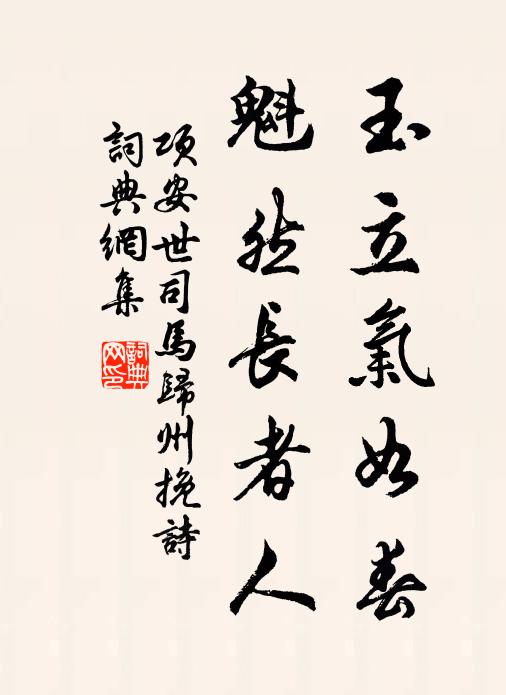 玉立氣如春
魁然長者人
項安世司馬歸州挽詩
詞典網集
詞典网印